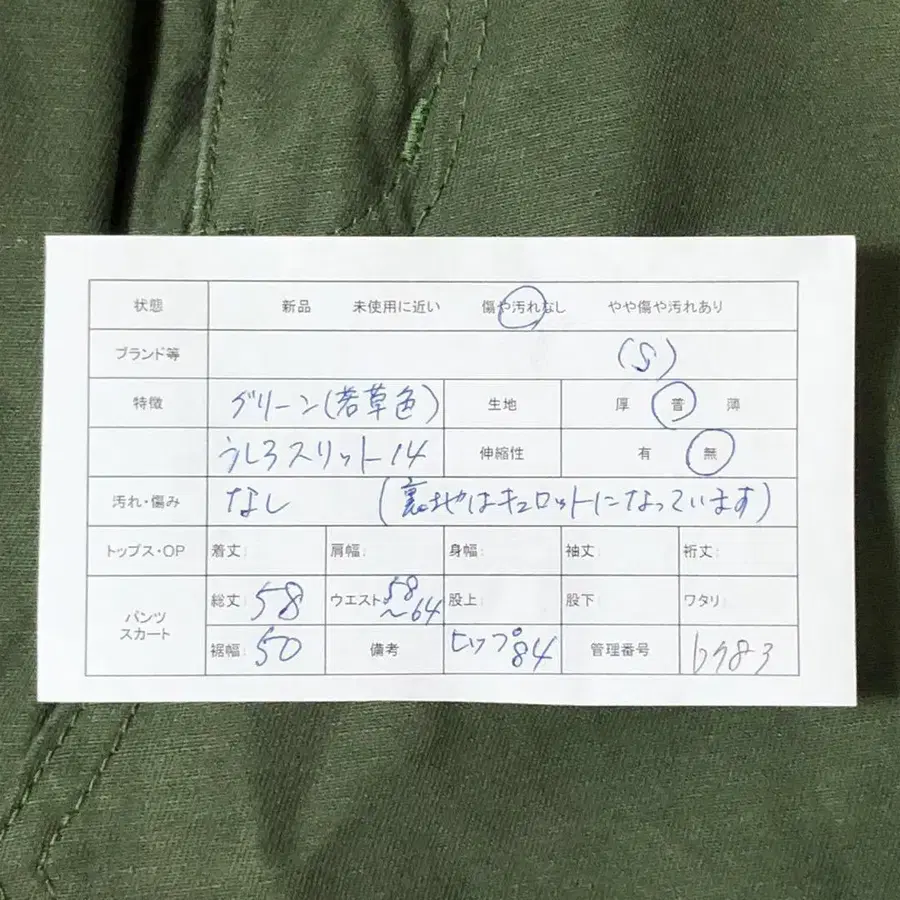 状態 新品 未使用に近い 傷や汚れなし やや傷や汚れあり
ブランド等 (S)
特徴 グリーン(若草色) 生地 厚 普 薄
うしろスリット14 伸縮性 有 無
汚れ・傷み なし (裏地はキュロットになっています)
トップス・OP 着丈: 肩幅: 身幅: 袖丈: 裄丈:
パンツ スカート 総丈: 58 ウエスト: 58~64 股上: 股下: ワタリ:
裾幅: 50 備考 ヒップ84 管理番号